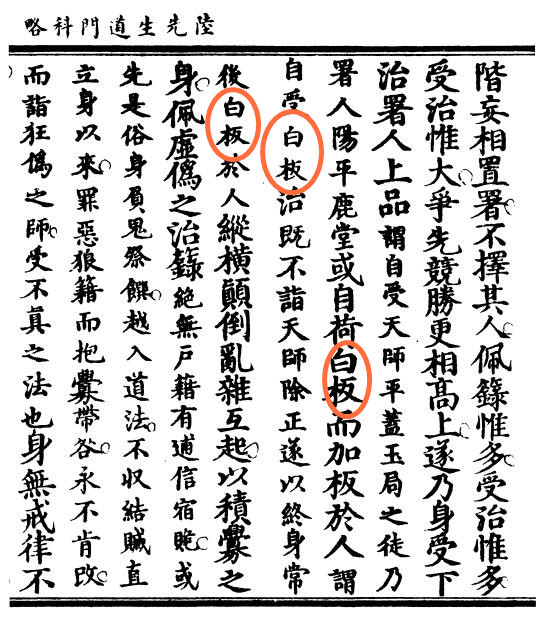 陸先生道門科略
階妄相置署不擇其人佩籙惟多受治惟多
受治惟大爭先競勝更相高上遂乃身受下
治署人上品謂自受天師平蓋玉局之徒乃
署人陽平鹿堂或自荷白板而加板於人謂
自受白板治既不詣天師除正遂以終身常
後白板於人縱橫顛倒亂雜互起以積釁之
身佩虛僞之治籙絕無戶籍有逋信宿或
先是俗身負鬼祭饌越入道法不収結贓直
立身以來罪惡狼籍而抱釁帶咎永不肯改
而詣狂僞之師受不真之法也身無戒律不